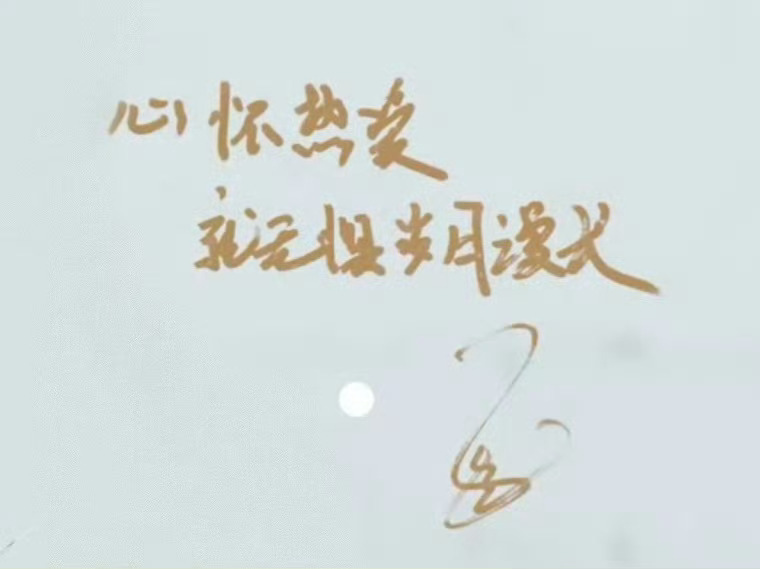 心怀热爱
就无惧岁月漫长